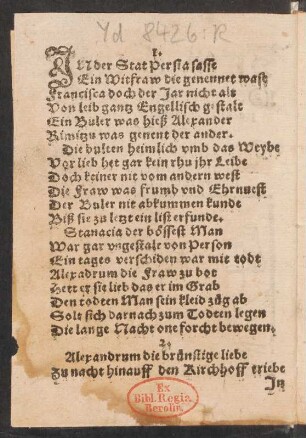 Yd 8426:R
1.
IN der Stat Persia sasse
Ein Witfraw die genennet wast
Francisca doch der Jar nicht alt
Von leib gantz Engellisch gestalt
Ein Buler was hieß Alexander
Rimitzu was genent der ander.
Die bulten heimlich vmb das Weybe
Vor lieb het gar kein rhu jhr Leibe
Doch keiner nit vom andern west
Die Fraw was frumb vnd Ehrnuest
Der Buler nit abkummen kunde
Biß sie zu letzt ein list erfunde.
Stanacia der bössest Man
War gar vngestalt von Person
Ein tages verschiden war mit todt
Alexadrum die Fraw zu bot
Hett er sie lieb das er im Grab
Den todten Man sein kleid züg ab
Solt sich darnach zum Todten legen
Die lange Nacht one forcht bewegen.
2.
Alexandrum die brünstige liebe
Zu nacht hinauff den Kirchhoff triebe
In
Ex
Bibl. Regia
Berolin.